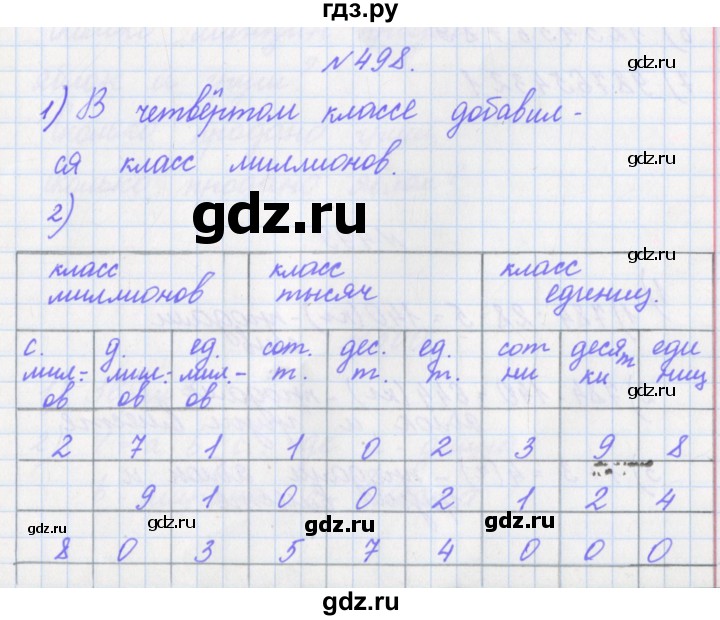 гдз.ру
gdz.ru
№498.
gdz.ru
1) В четвёртом классе добавил-
gdz.ru
ся класс миллионов.
2)
gdz.ru
gdz.ru
класс миллионов класс тысяч класс единиц.
с. мил-ов д. мил-ов ед. мил-ов сот. т. дес. т. ед. т. сот ни десят ки еди ниц
gdz.ru
gdz.ru
2 7 1 1 0 2 3 9 8
9 1 0 0 2 1 2 4
gdz.ru gdz.ru gdz.ru gdz.ru
8 0 3 5 7 4 0 0 0
gdz.ru